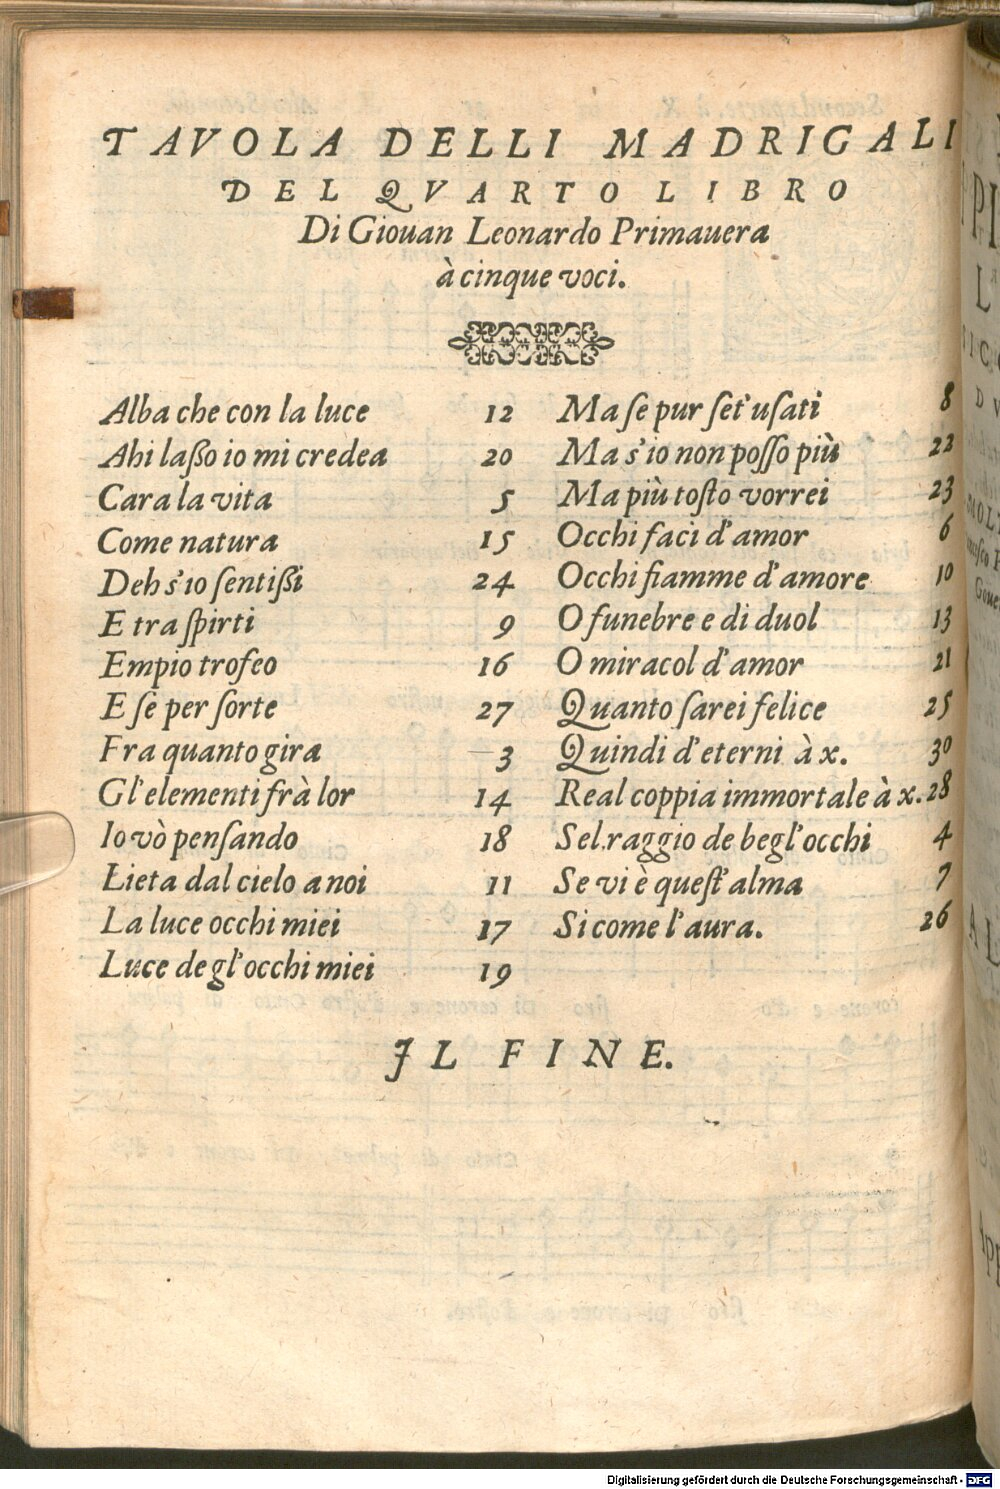 TAVOLA DELLI MADRIGALI
DEL QVARTO LIBRO
Di Giouan Leonardo Primauera
à cinque voci.
Alba che con la luce 12
Ahi laßo io mi credea 20
Cara la vita 5
Come natura 15
Deh s'io ſentißi 24
E tra ſpirti 9
Empio trofeo 16
E ſe per ſorte 27
Fra quanto gira 3
Gl'elementi frà lor 14
Io vò penſando 18
Lieta dal cielo a noi 11
La luce occhi miei 17
Luce de gl'occhi miei 19
Ma ſe pur ſet'uſati 8
Ma s'io non poſſo più 22
Ma più toſto vorrei 23
Occhi faci d'amor 6
Occhi fiamme d'amore 10
O funebre e di duol 13
O miracol d'amor 21
Quanto ſarei felice 25
Quindi d'eterni à x. 30
Real coppia immortale à x. 28
Sel raggio de begl'occhi 4
Se vi è queſt'alma 7
Si come l'aura. 26
IL FINE.
Digitalisierung gefördert durch die Deutsche Forschungsgemeinschaft - DFG